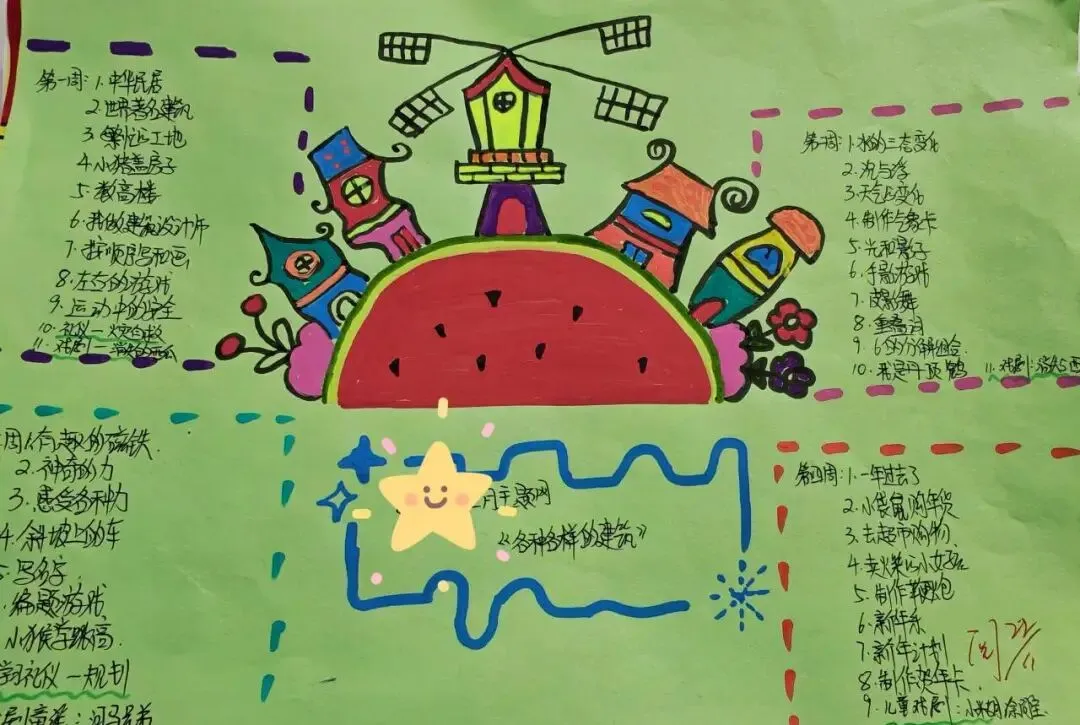 第一周：1.中华民居
2.世界著名建筑
3.繁忙的工地
4.小猪盖房子
5.数高楼
6.我的建筑设计师
7.按顺序写和画
8.左右的游戏
9.运动中的安全
10.礼仪一
11.戏剧一
1.水的三态变化
2.沉与浮
3.天气与变化
4.制作气象卡
5.光和影子
6.手影游戏
7.
8.重叠词
9.6的分解组合
10.我是丹顶鹤 11.戏剧：
月主题网
《各种各样的建筑》
周1.有趣的磁铁
2.神奇的力
3.感受各种力
4.斜坡上的车
写名字
游戏
小猴学跳高
学习礼仪一规划
童：河马兄弟
第四周：1.一年过去了
2.小袋鼠购年货
3.去超市购物
4.卖火柴的小女孩
5.制作鞭炮
6.新年乐
7.新年计划
8.制作贺年卡
9.儿童戏剧：小